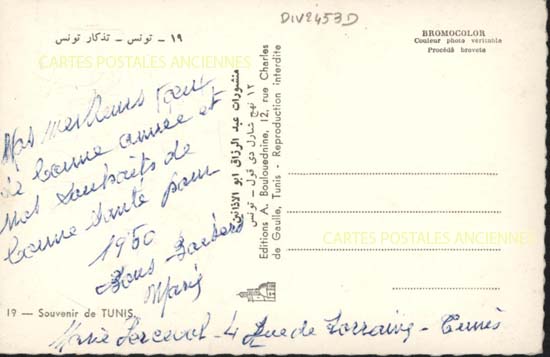 DIV2453D
١٩ — تونس — تذكار تونس
BROMOCOLOR
Couleur photo véritable
Procédé breveté
CARTES POSTALES ANCIENNES
Nos meilleurs vœux
de bonne année et
nos souhaits de
bonne santé pour
1960
Bons Baisers
Marie
منشورات عبد الرزاق ابو الاذانين
١٢ نهج شارل دي قول — تونس
Editions A. Boulouednine, 12, rue Charles
de Gaulle, Tunis - Reproduction interdite
CARTES POSTALES ANCIENNES
19 — Souvenir de TUNIS.
Marie - 4 Rue de Lorraine - Tunis